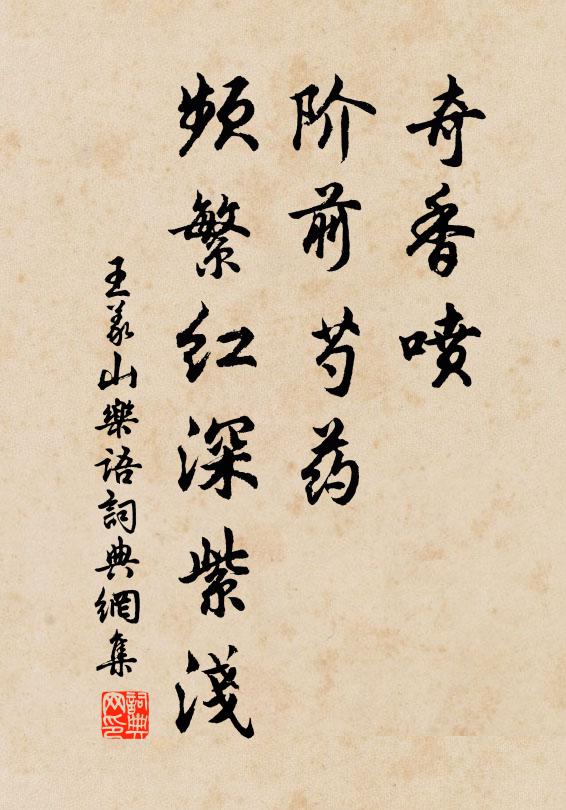 奇香喷
阶前芍药
频繁红深紫淺
王义山樂语詞典網集
詞典网印